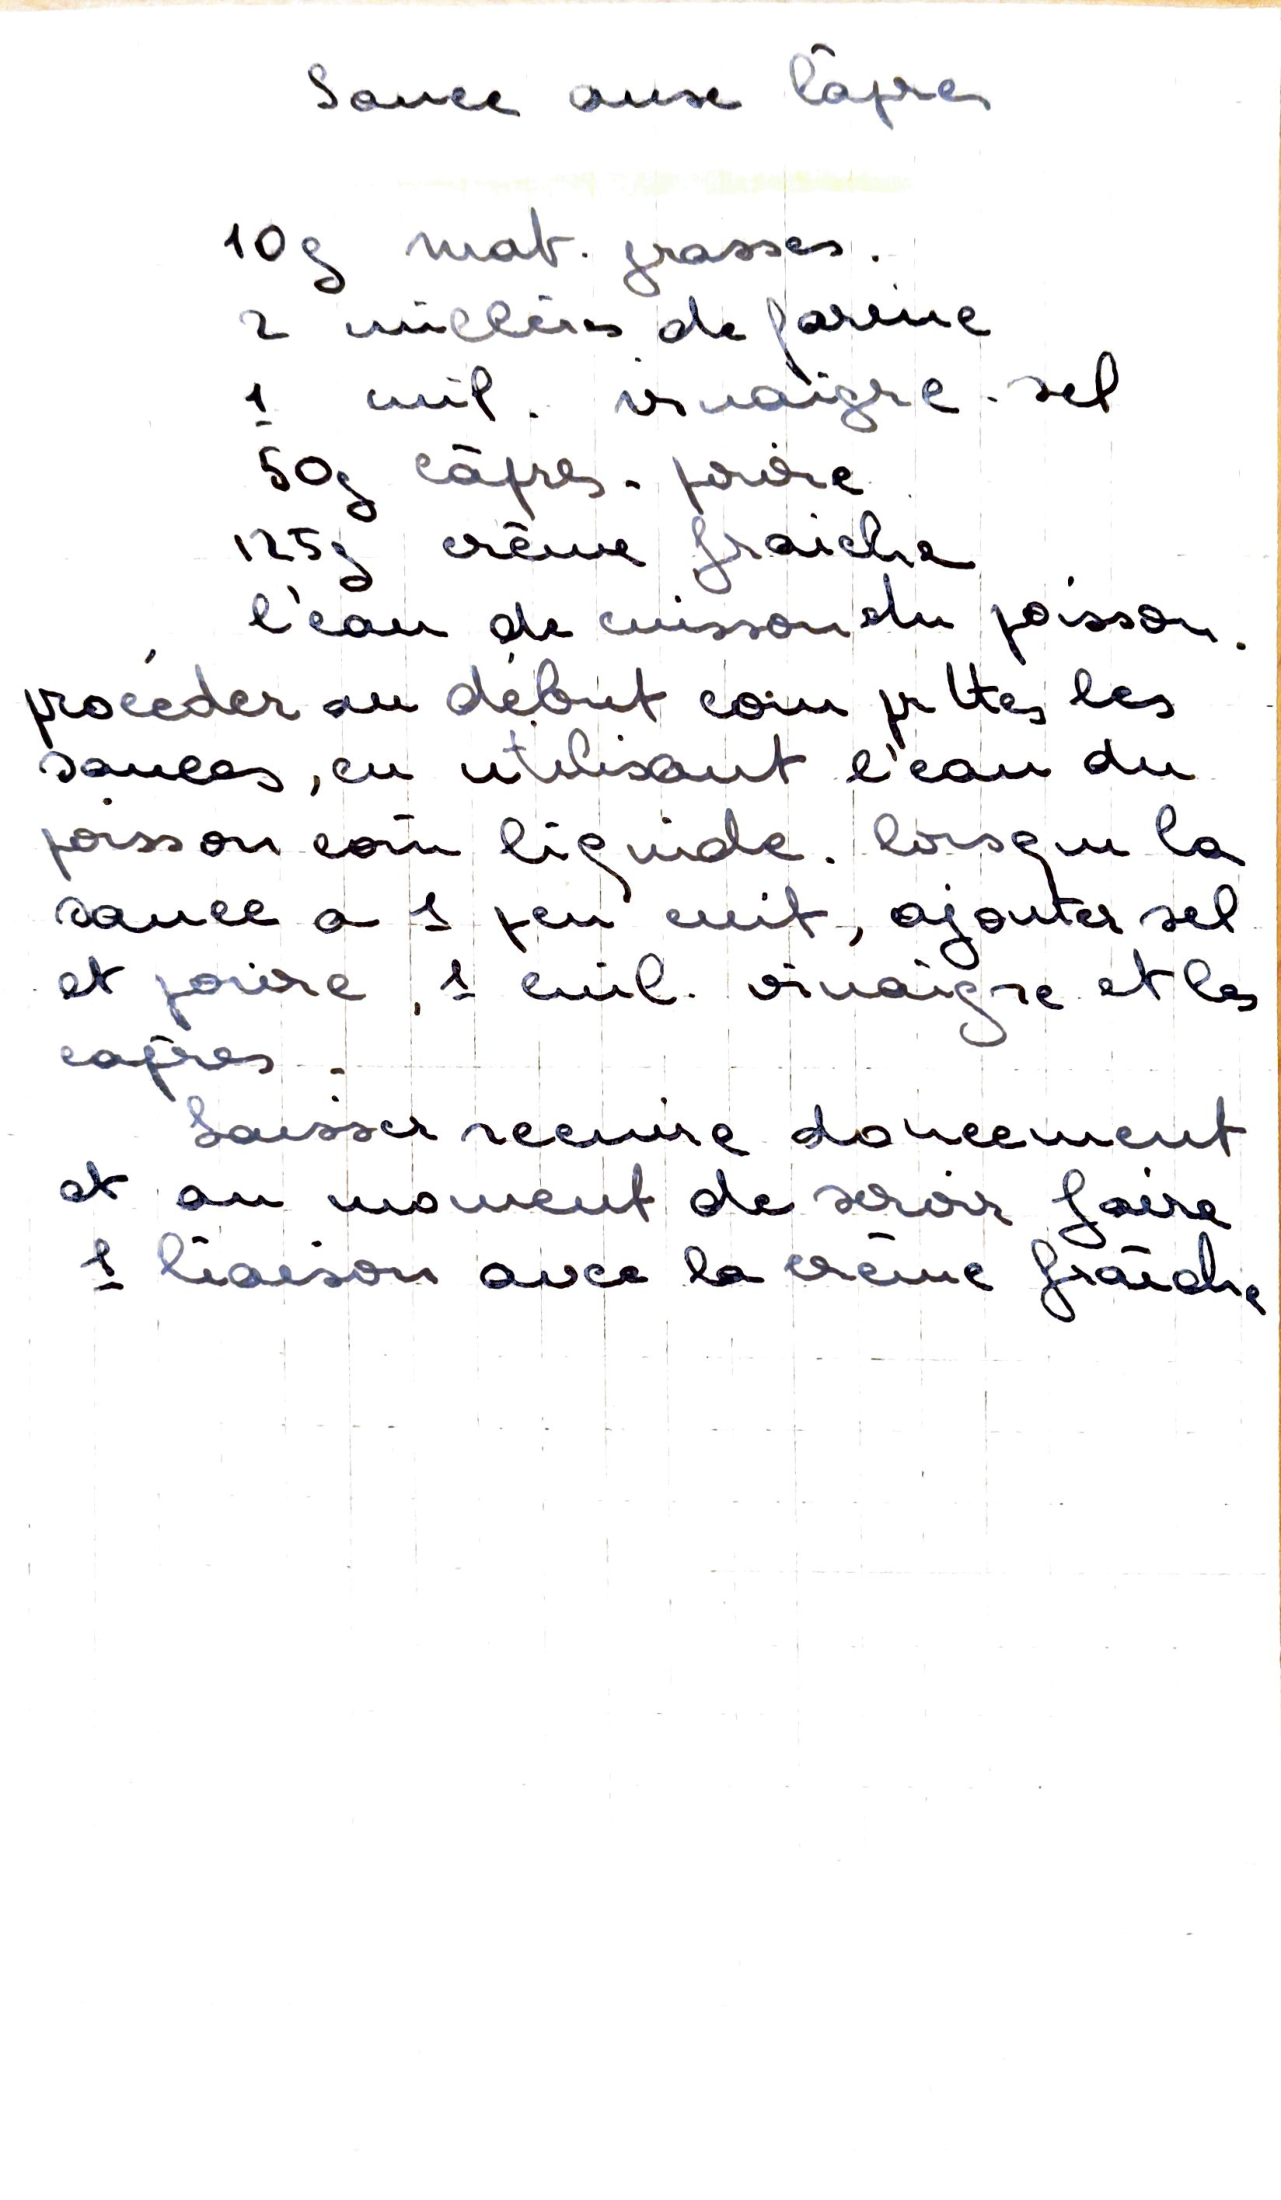 Sauce aux Câpres
10g mat. grasses.
2 cuillères de farine
1 cuil. vinaigre. sel
50g câpres. poivre
125g crème fraiche
l'eau de cuisson du poisson.
procéder au début com pr ttes les
sauces, en utilisant l'eau du
poisson com liquide. lorsque la
sauce a 1 peu cuit, ajouter sel
et poivre, 1 cuil. vinaigre et les
capres.
Laisser recuire doucement
et au moment de servir faire
1 liaison avec la crème fraîche